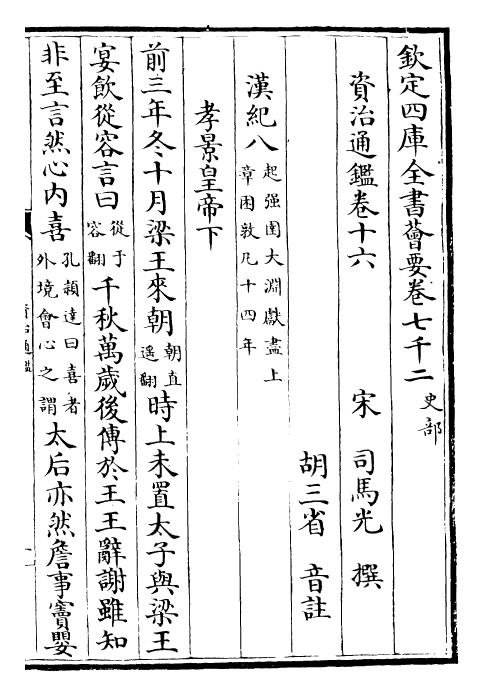 欽定四庫全書薈要卷七千二 史部
資治通鑑卷十六
宋 司馬光 撰
胡三省 音註
漢紀八 起强圉大淵獻盡上章困敦凡十四年
孝景皇帝下
前三年冬十月梁王來朝 朝直遥翻 時上未置太子與梁王
宴飲從容言曰 從于容翻 千秋萬歲後傳於王王辭謝雖知
非至言然心内喜 孔頴達曰喜者外境會心之謂 太后亦然詹事竇嬰